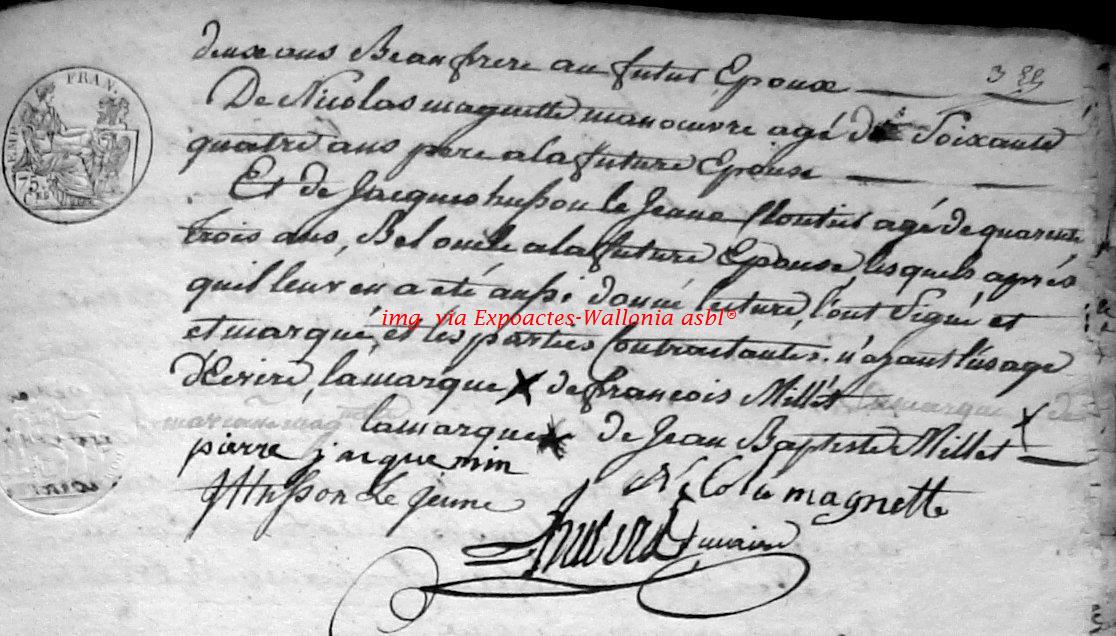 deux ans Beaufrere au futur Epoux
De Nicolas magnette manoeuvre agé de Soixante
quatre ans pere a la future Epouse
Et de Jacques husson le Jeune Cloutier agé de quarante
trois ans, Bel oncle a la future Epouse, lesquels aprés
quil leur en a eté aussi donné lecture, l'ont Signé et
et marqué, et les parties Contractantes n'ayant l'usage
d'Ecrire, la marque X de françois Millet la marque X de
marianne mag
la marque X de Jean Baptiste Millet
pierre jacquemin
Nicola magnette
JHusson Le jeune
maire
FRAN.
75
img via Expoactes-Wallonia asbl©